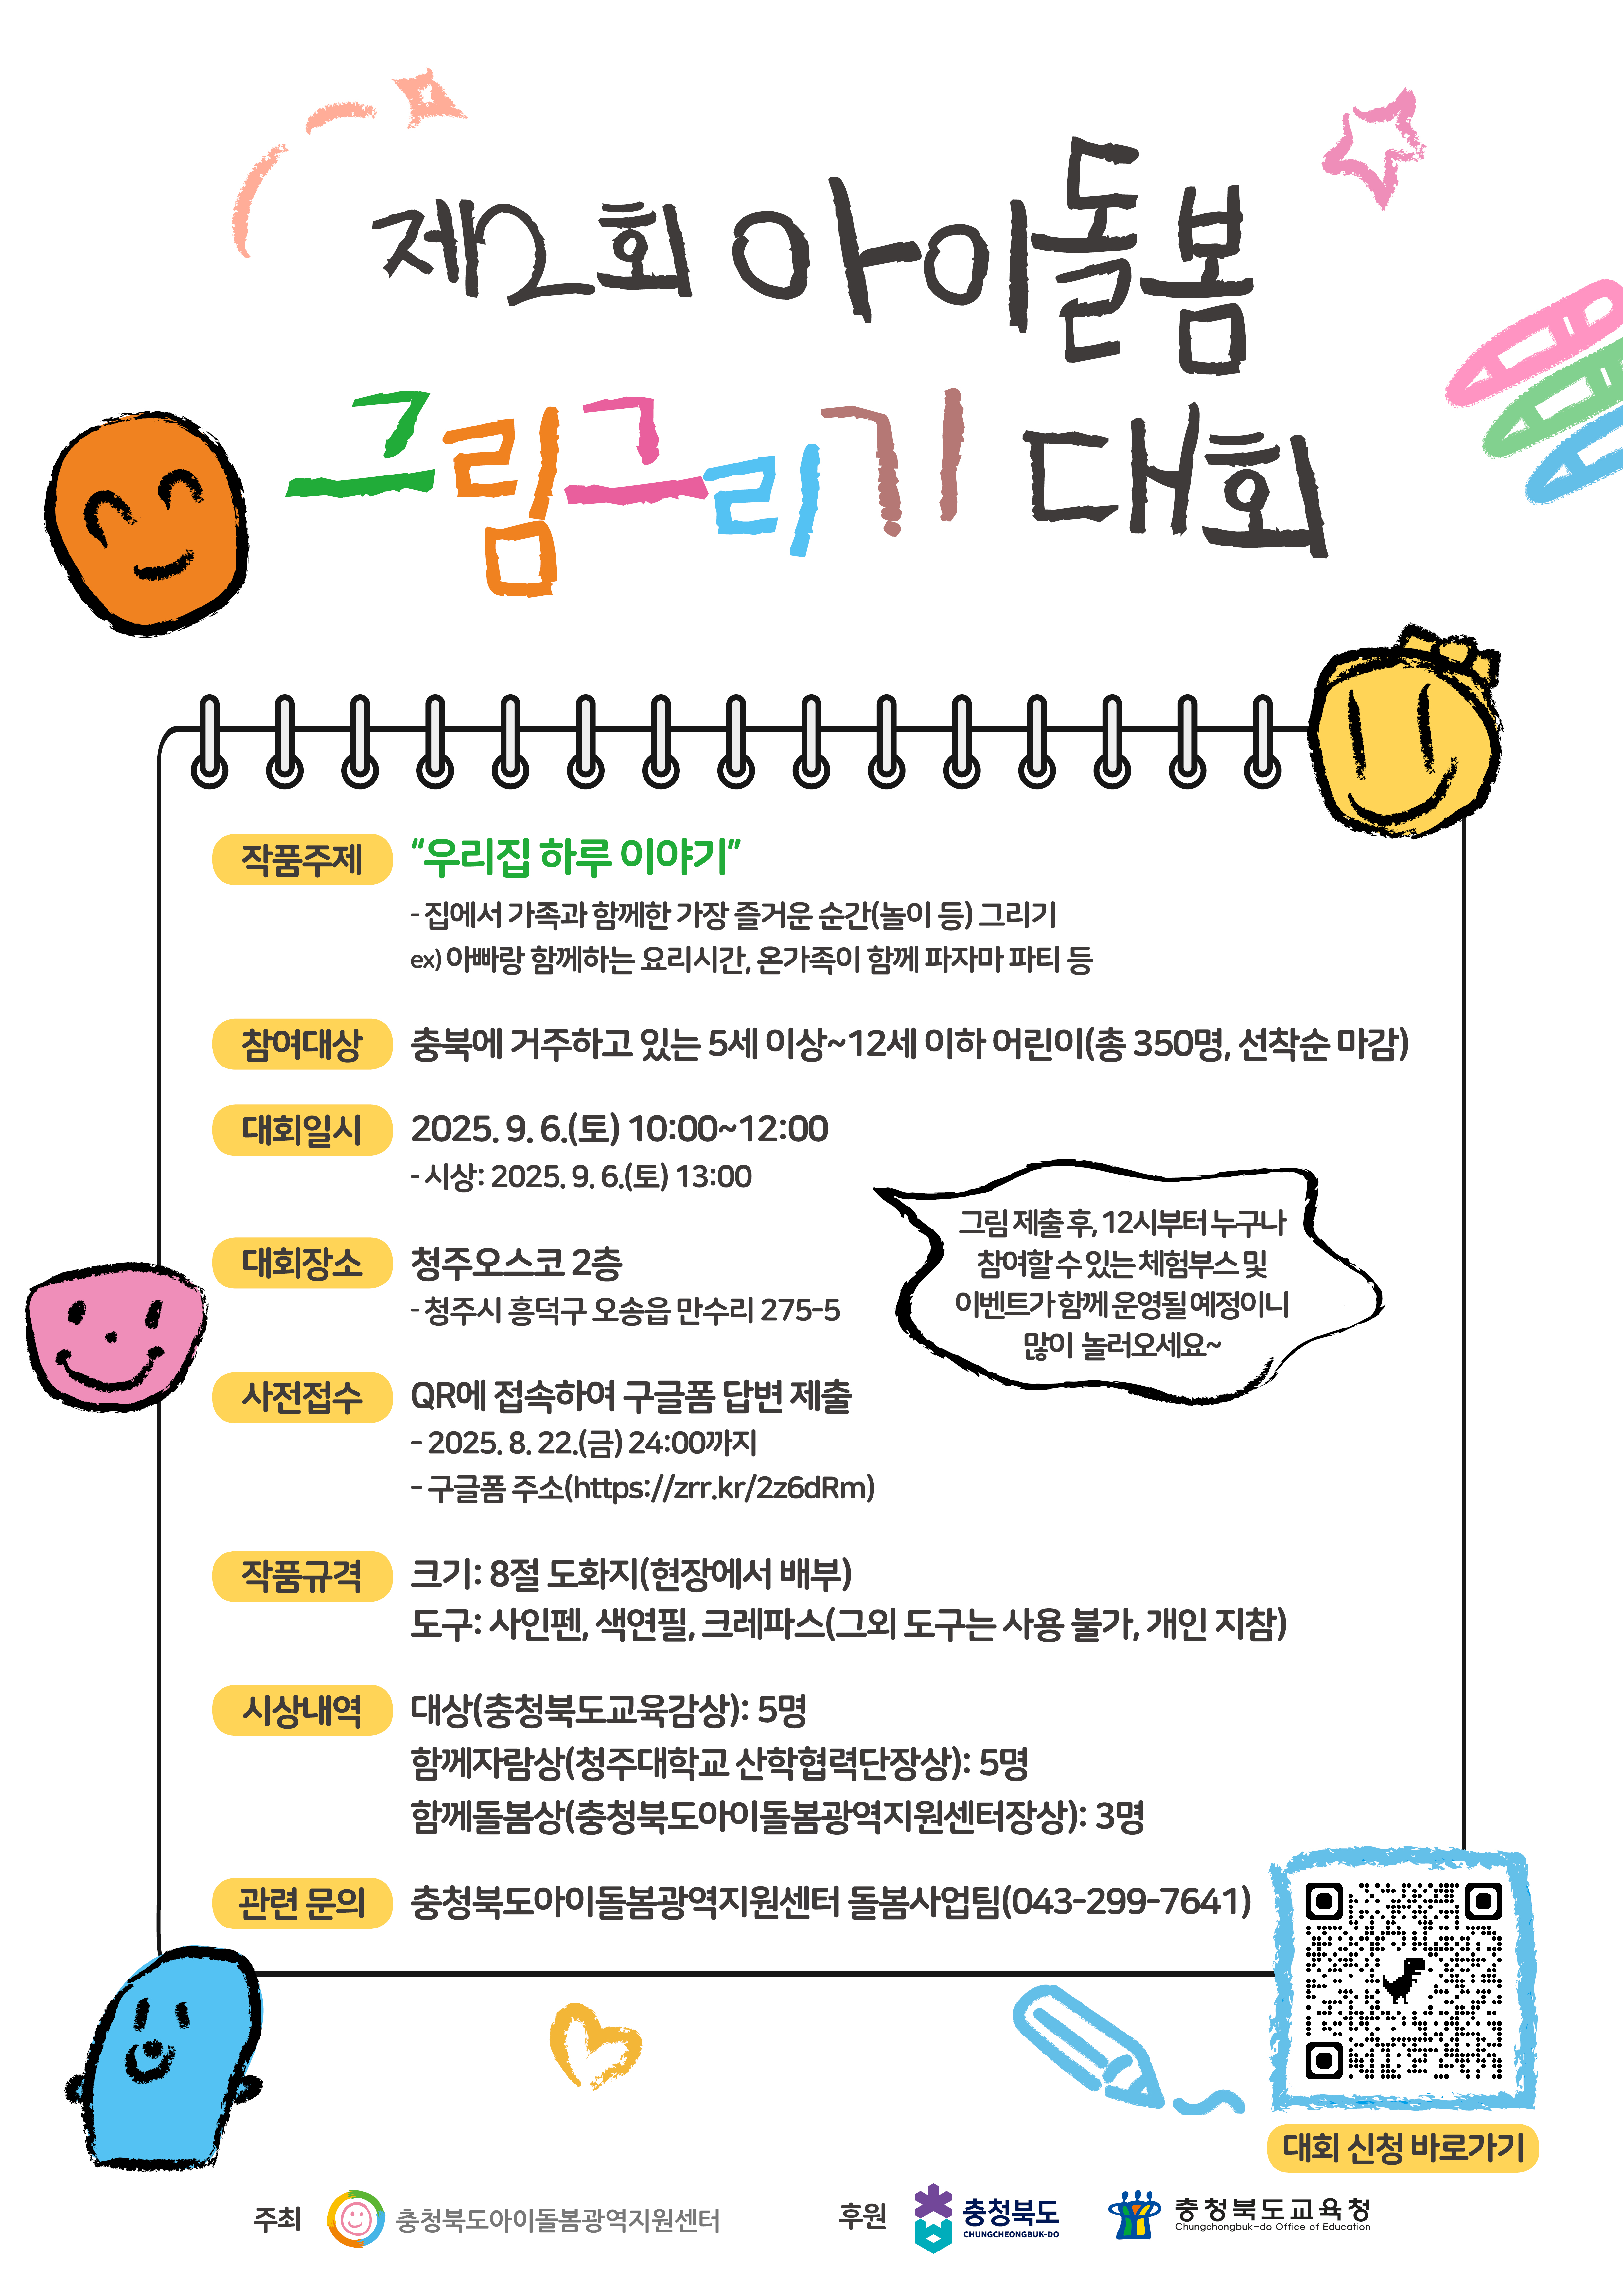 제2회 아이돌봄
그림그리기 대회
작품주제 “우리집 하루 이야기”
- 집에서 가족과 함께한 가장 즐거운 순간(놀이 등) 그리기
ex) 아빠랑 함께하는 요리시간, 온가족이 함께 파자마 파티 등
참여대상 충북에 거주하고 있는 5세 이상~12세 이하 어린이(총 350명, 선착순 마감)
대회일시 2025. 9. 6.(토) 10:00~12:00
- 시상: 2025. 9. 6.(토) 13:00
대회장소 청주오스코 2층
- 청주시 흥덕구 오송읍 만수리 275-5
그림 제출 후, 12시부터 누구나
참여할 수 있는 체험부스 및
이벤트가 함께 운영될 예정이니
많이 놀러오세요~
사전접수 QR에 접속하여 구글폼 답변 제출
- 2025. 8. 22.(금) 24:00까지
- 구글폼 주소(https://zrr.kr/2z6dRm)
작품규격 크기: 8절 도화지(현장에서 배부)
도구: 사인펜, 색연필, 크레파스(그외 도구는 사용 불가, 개인 지참)
시상내역 대상(충청북도교육감상): 5명
함께자람상(청주대학교 산학협력단장상): 5명
함께돌봄상(충청북도아이돌봄광역지원센터장상): 3명
관련 문의 충청북도아이돌봄광역지원센터 돌봄사업팀(043-299-7641)
대회 신청 바로가기
주최 충청북도아이돌봄광역지원센터
후원 충청북도
CHUNGCHEONGBUK-DO
충청북도교육청
Chungchongbuk-do Office of Education